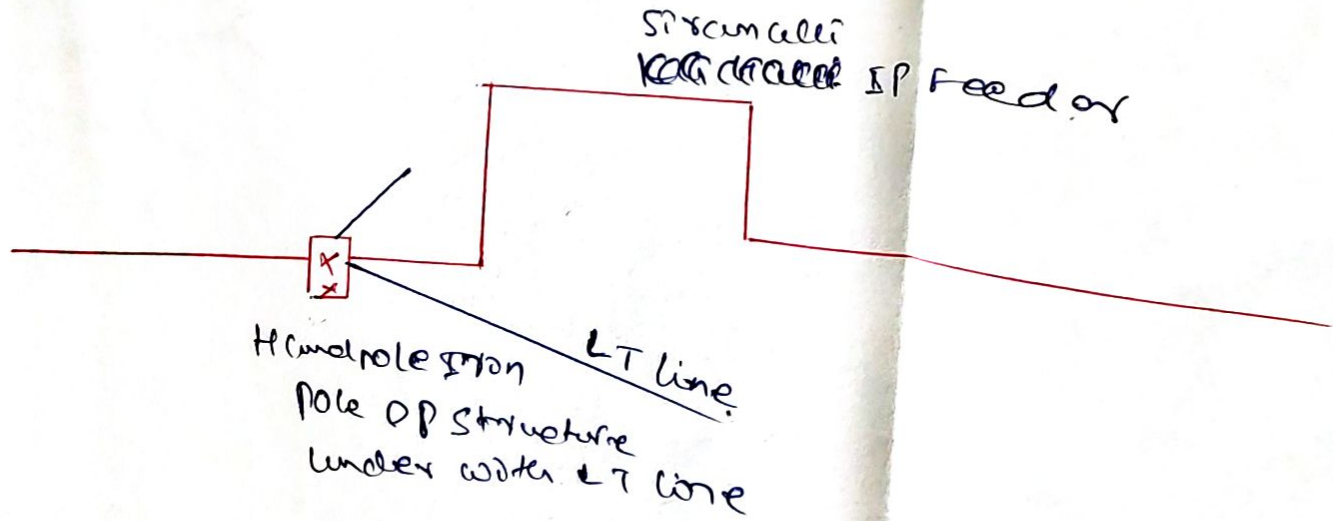 Sircumalli
IP Feedor
LT line
Handpole Iron
Pole DP Structure
under with LT line